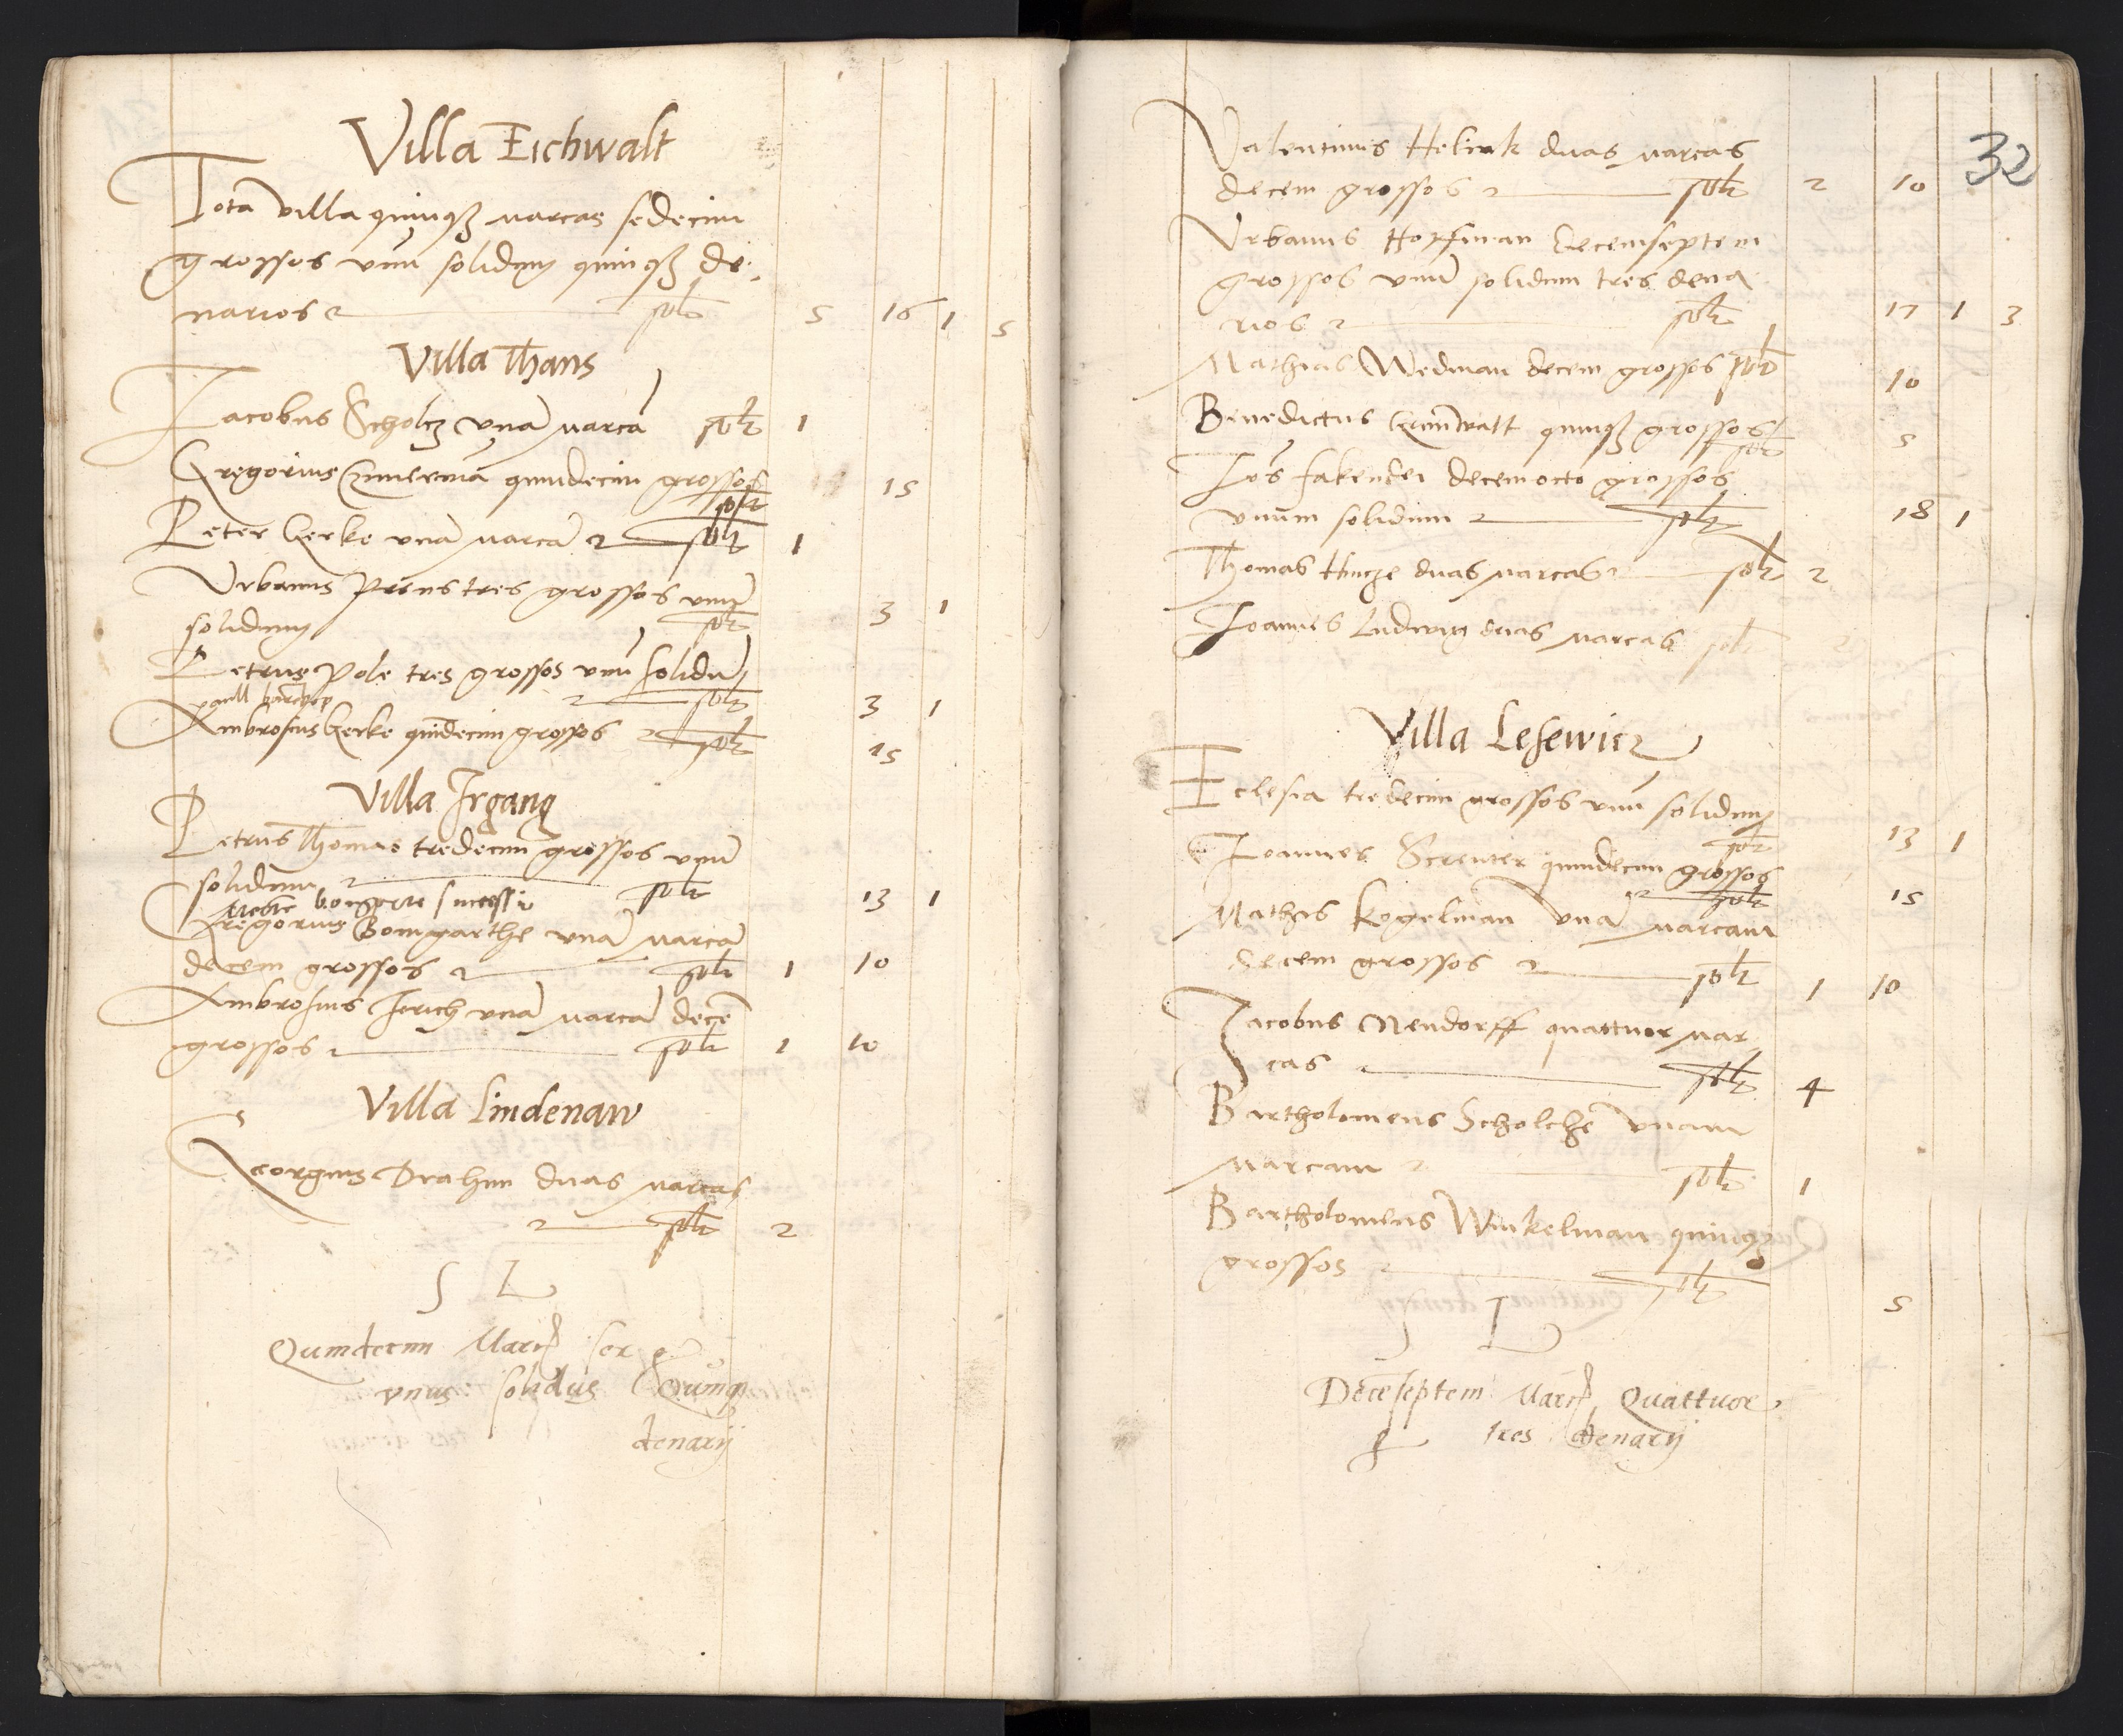 Villa Eichwalt
Tota villa quinqz marcas sedecim
grossos vnu solidum quinqz de-
narios solt 5 16 1 5
Villa Thans
Jacobus Scholcz vna marca solt 1
Gregorius quindecim grossos 15
solt
Peter Gerke vna marca solt 1
Vrbanus tres grossos vnu
solidum solt 3 1
Petrus Pole tres grossos vnu solidu
solt 3 1
paull
Ambrosius Gerke quindecim grossos solt 15
Villa Irgang
Petrus Thomas tredecim grossos vnu
solidum solt 13 1
Gregorius Bomgarthe vna marca
decem grossos solt 1 10
Ambrosius vna marca dece
grossos solt 1 10
Villa Lindenaw
Georgius Drahim duas marcas
solt 2
S L
Quindecim Marc sex g
vnus solidus Quinq
denarij
32
Valentinus duas marcas
decem grossos solt 2 10
Vrbanus Hopfman decemseptem
grossos vnu solidum tres dena
rios solt 17 1 3
Mathias Wedman decem grossos solt 10
Benedictus quinqz grossos
solt 5
decemocto grossos
vnum solidum solt 18 1
Thomas duas marcas solt 2
Joannes Ludwig duas marcas solt 2
Villa Lesewicz
Eclesia tredecim grossos vnu solidum
solt 13 1
Joannes quindecim grossos
solt 15
Mathis Kogelman vna marcam
decem grossos solt 1 10
Jacobus Nendorff quattuor mar
cas solt 4
Bartholomeus Scholche vnam
marcam solt 1
Bartholomeus Winkelman quinqz
grossos solt 5
S L
Deceseptem Marc Quattuor
g tres denarij